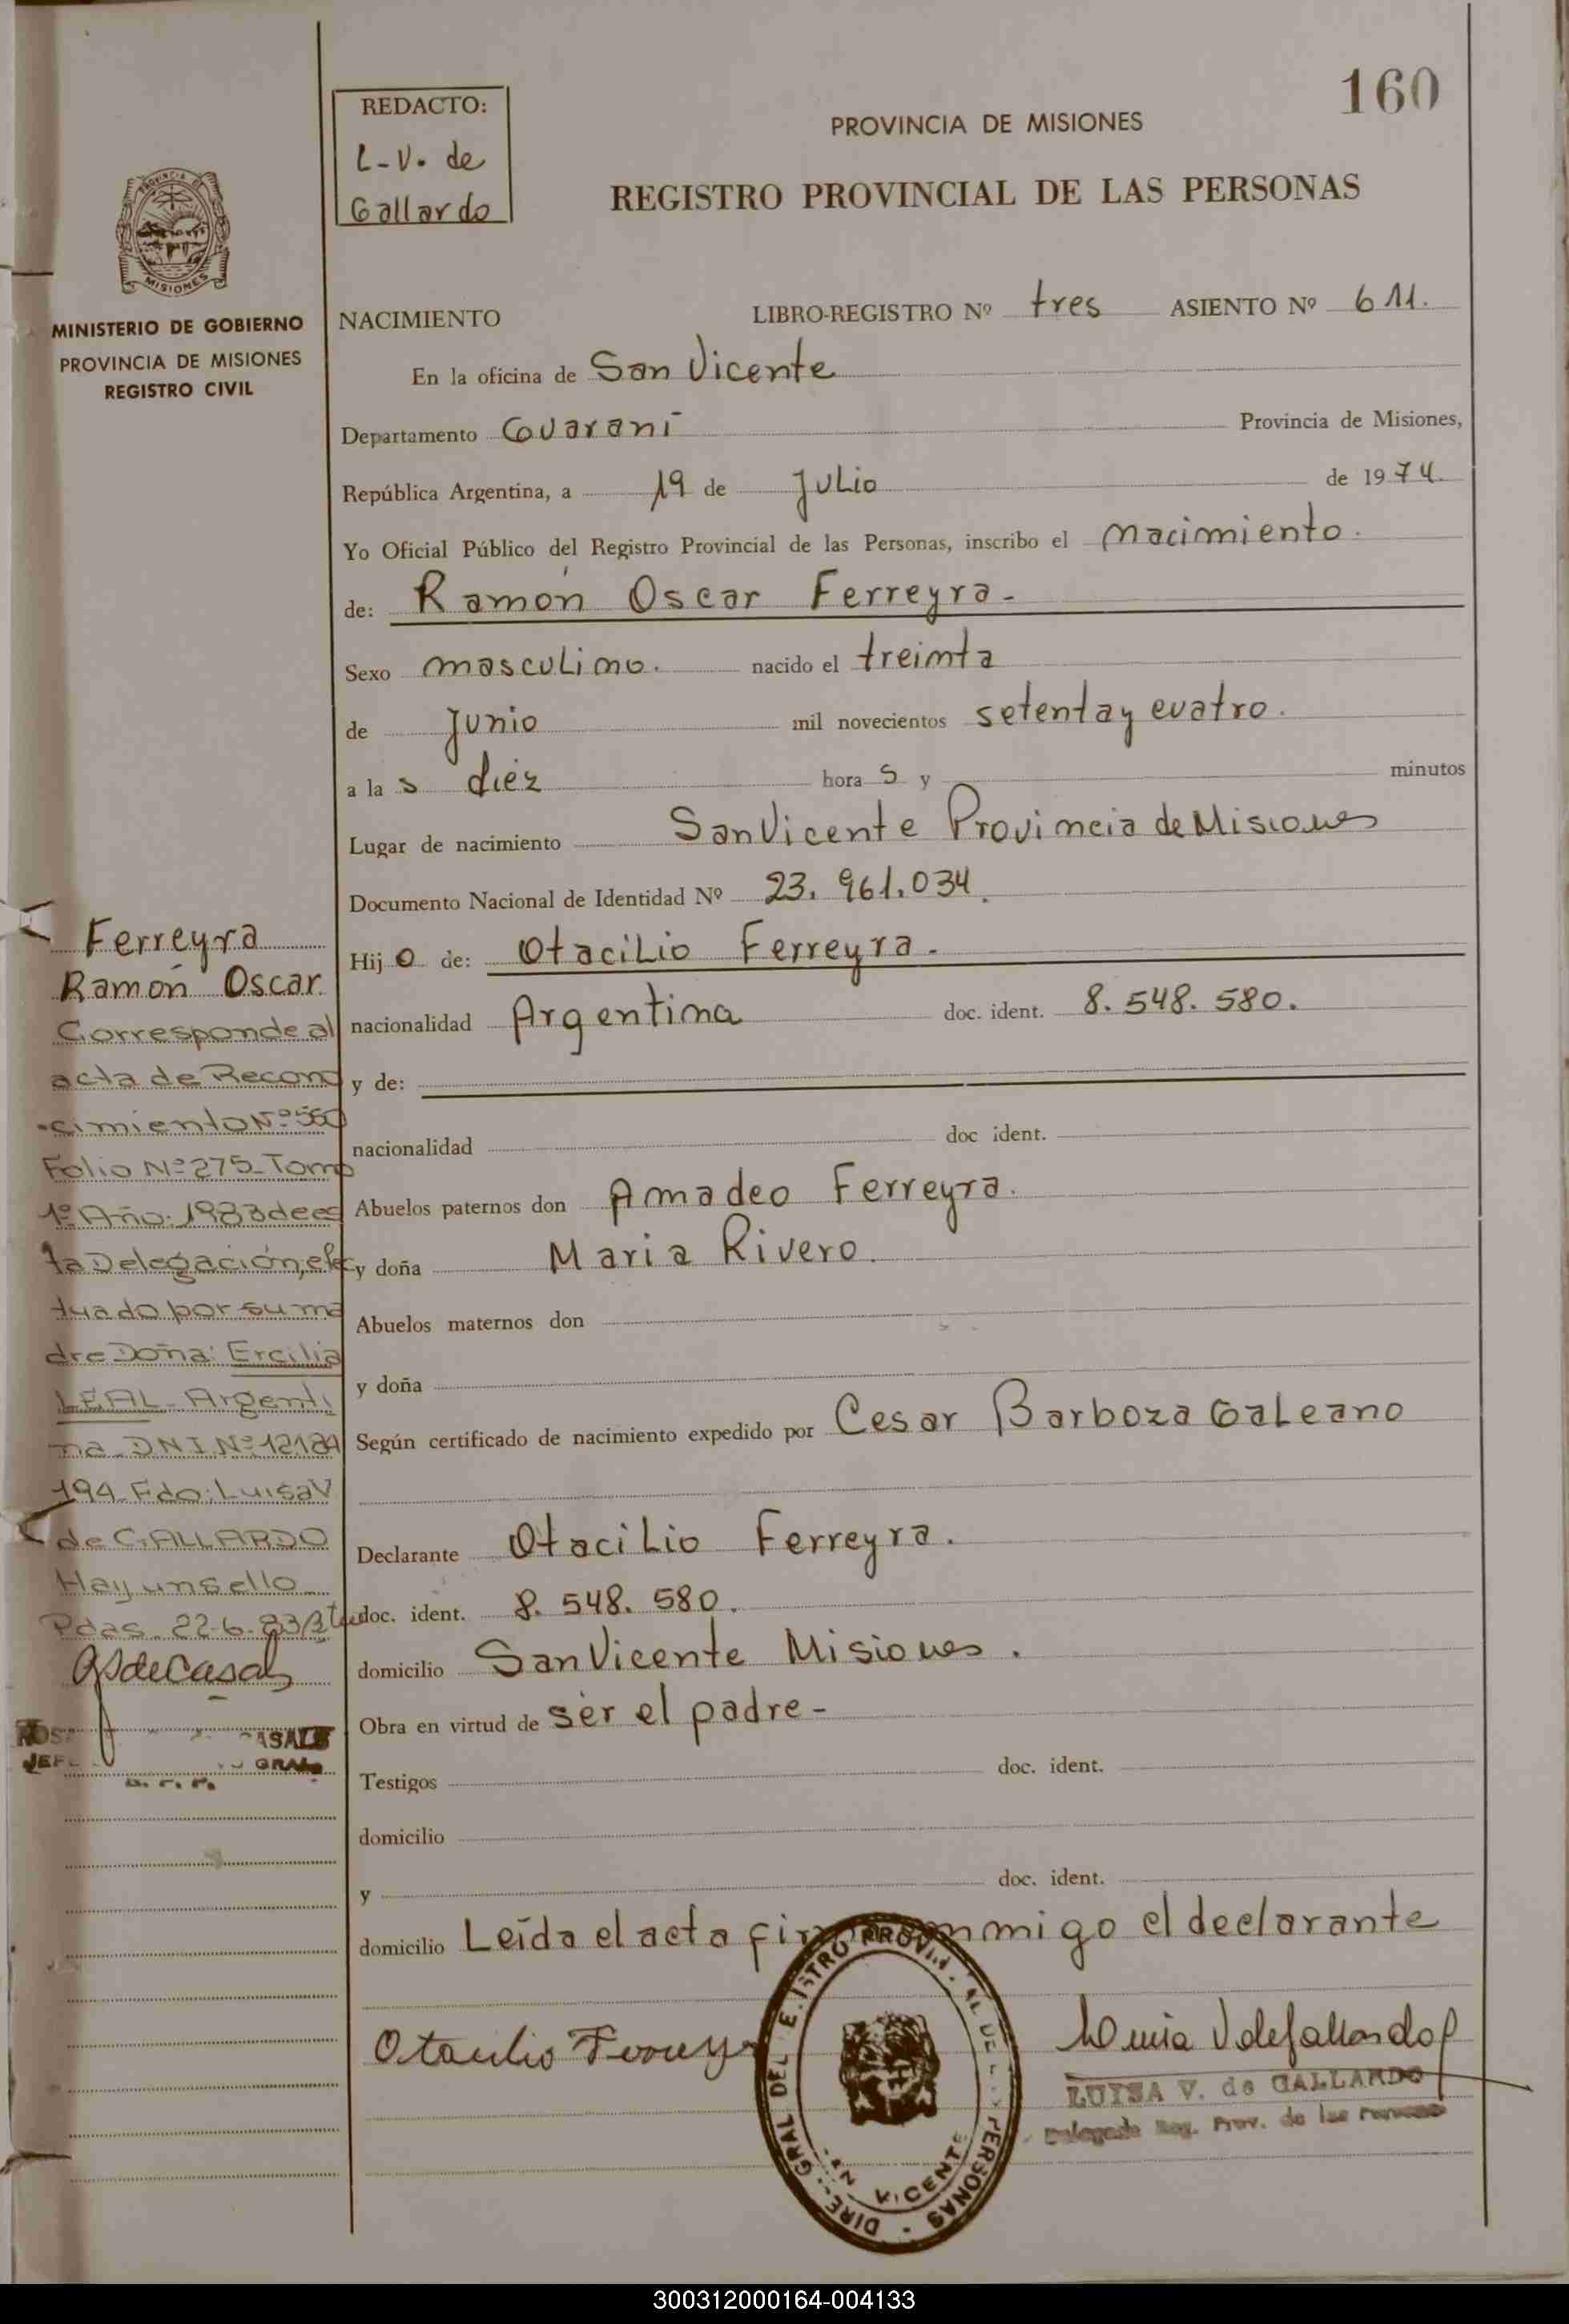 160
REDACTO:
L-V. de
Gallardo
PROVINCIA DE MISIONES
REGISTRO PROVINCIAL DE LAS PERSONAS
PROVINCIA DE
MISIONES
MINISTERIO DE GOBIERNO
PROVINCIA DE MISIONES
REGISTRO CIVIL
NACIMIENTO LIBRO-REGISTRO Nº tres ASIENTO Nº 611.
En la oficina de San Vicente
Departamento Guaraní Provincia de Misiones,
República Argentina, a 19 de Julio de 1974.
Yo Oficial Público del Registro Provincial de las Personas, inscribo el nacimiento.
de: Ramón Oscar Ferreyra-
Sexo masculino. nacido el treinta
de junio mil novecientos setenta y cuatro.
a las diez horas y minutos
Lugar de nacimiento San Vicente Provincia de Misiones
Documento Nacional de Identidad Nº 23.961.034.
Hijo de: Otacilio Ferreyra-
nacionalidad Argentina doc. ident. 8.548.580.
y de:
nacionalidad doc ident.
Abuelos paternos don Amadeo Ferreyra.
y doña Maria Rivero.
Abuelos maternos don
y doña
Según certificado de nacimiento expedido por Cesar Barboza Galeano
Declarante Otacilio Ferreyra.
doc. ident. 8.548.580.
domicilio San Vicente Misiones.
Obra en virtud de ser el padre-
Testigos doc. ident.
domicilio
y doc. ident.
domicilio Leída el acta firma conmigo el declarante
Otacilio Ferreyra
Luisa V de Gallardo
LUISA V. de GALLARDO
Delegada Reg. Prov. de las Personas
SAN VICENTE
Ferreyra
Ramón Oscar
Corresponde al
acta de Recono
cimiento Nº 550
Folio Nº 275-Tomo
1º Año: 1983 de es
ta Delegación, efec
tuado por su ma
dre Doña: Ercilia
LEAL-Argenti
na-DNI Nº 12184
194-Fdo: Luisa V
de GALLARDO
Hay un sello
Pdas. 22-6-83
CASALS
JEF
GRAL
300312000164-004133